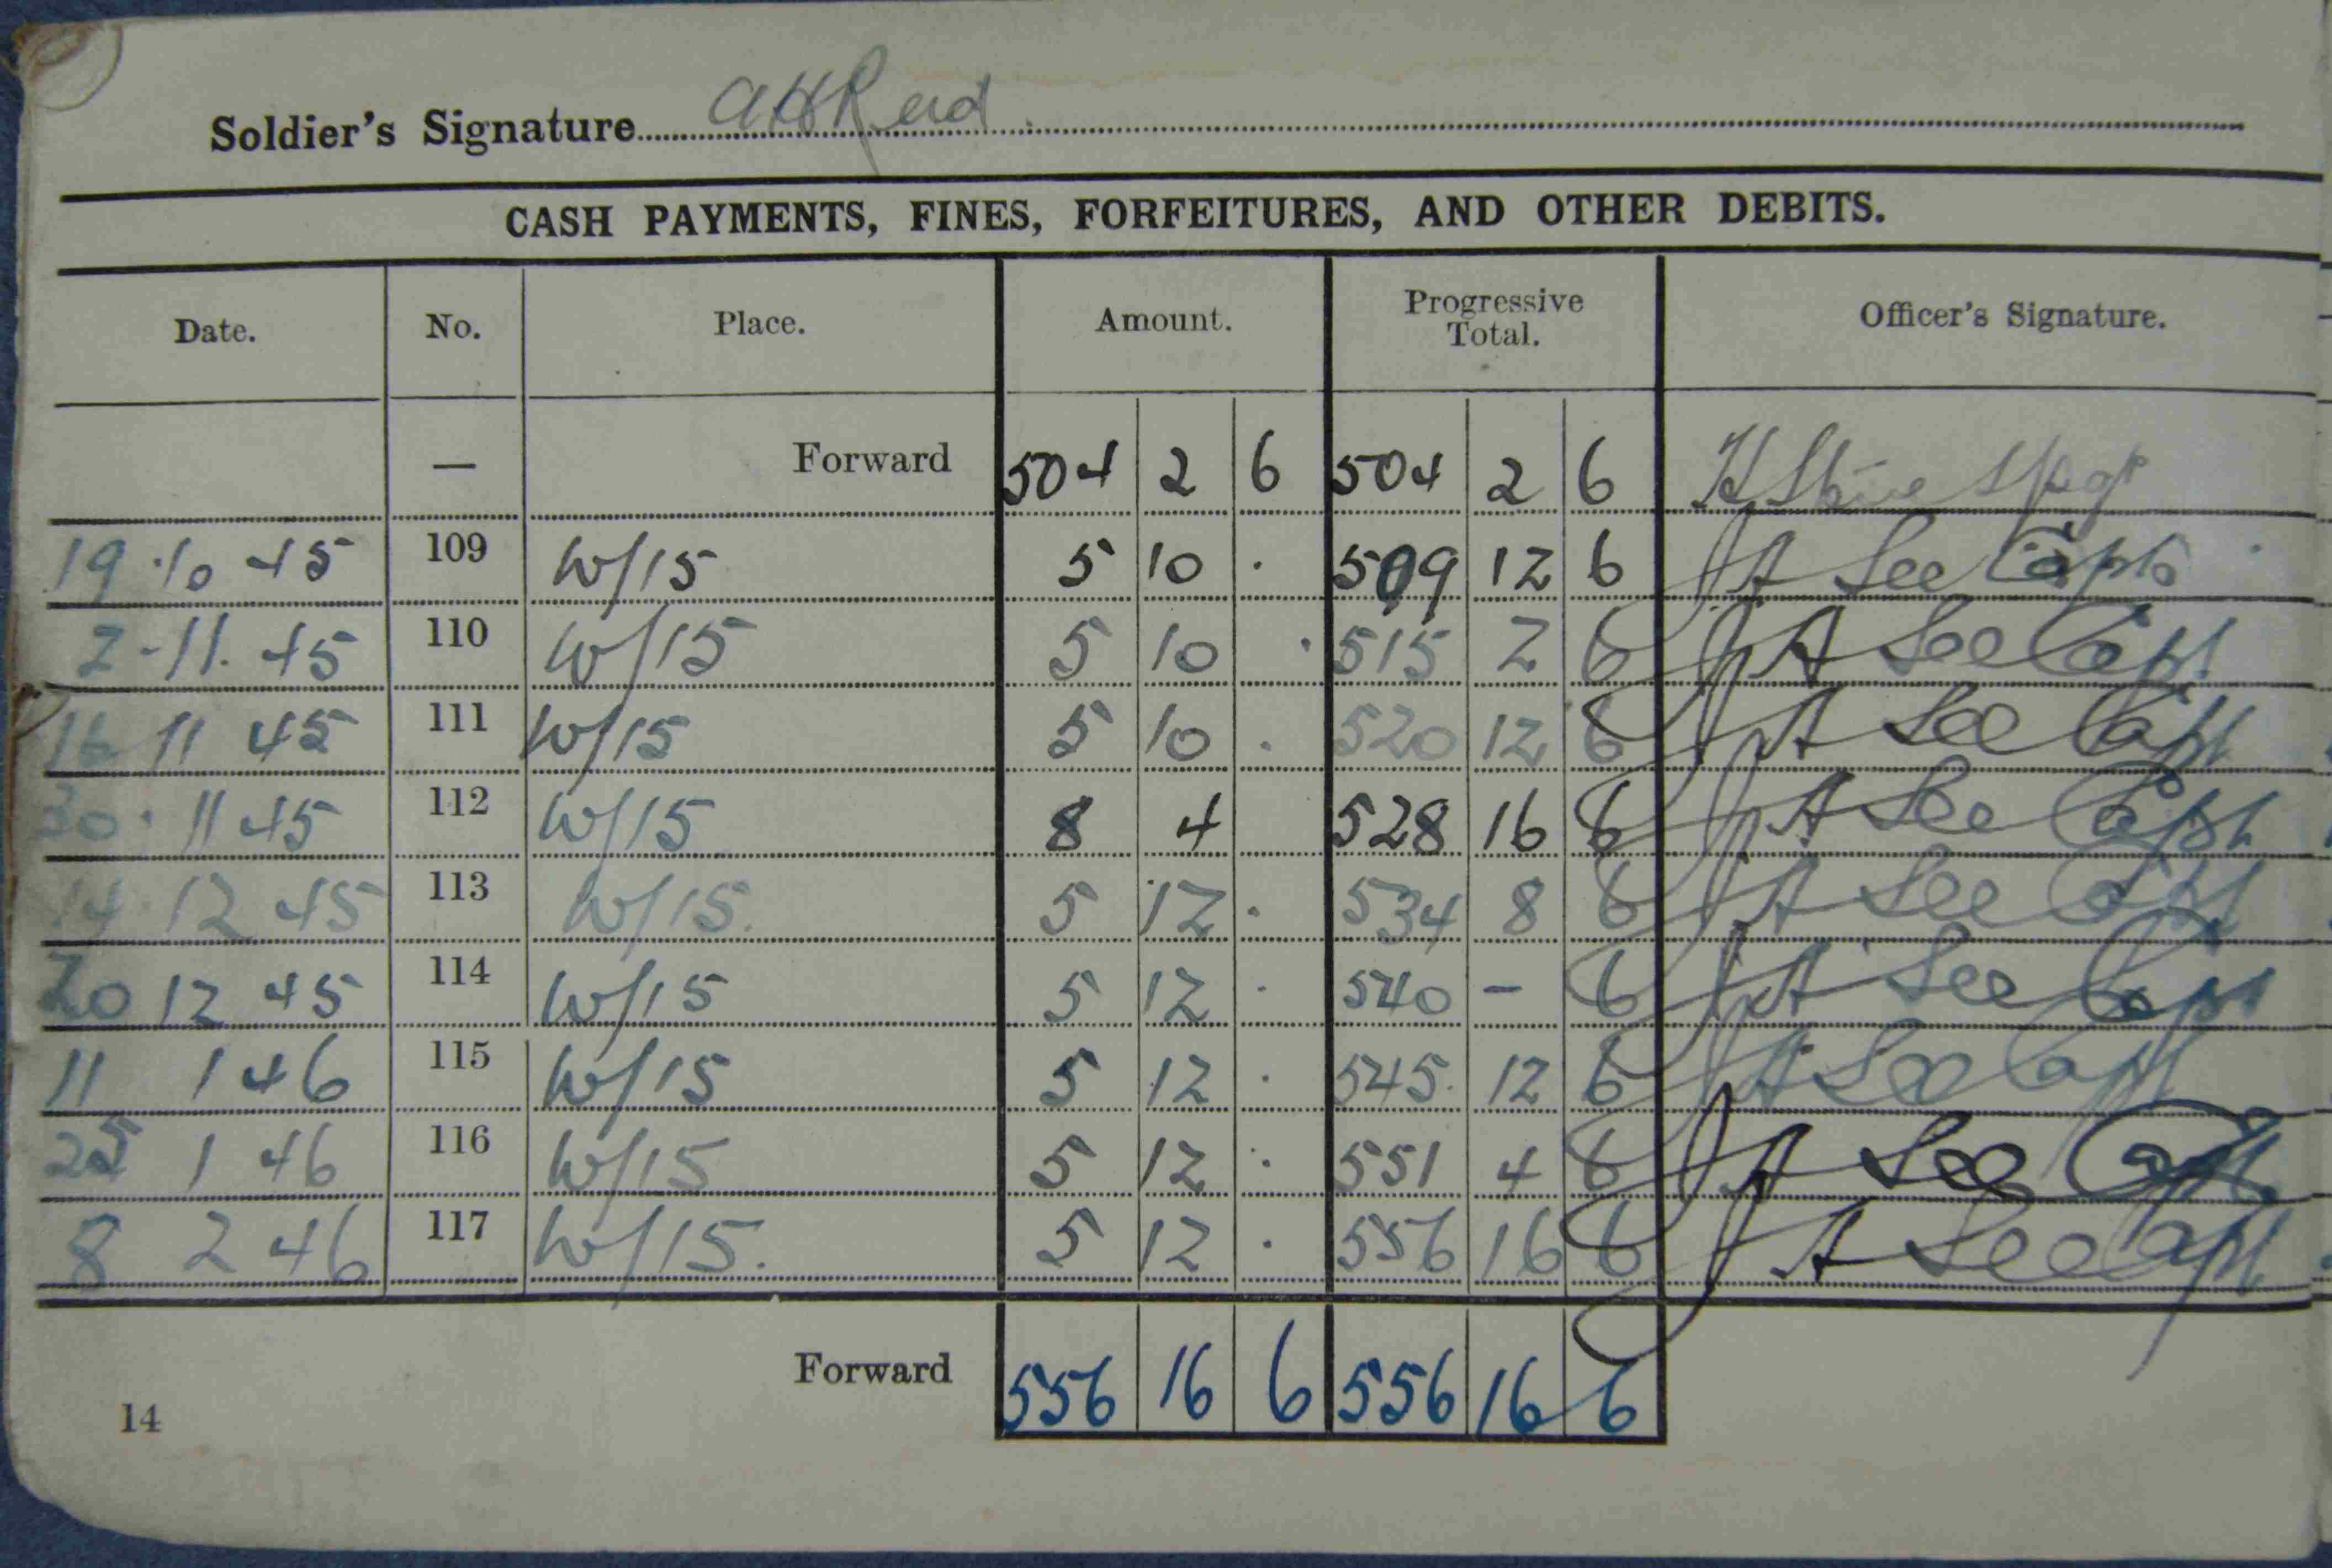 Soldier's Signature AHReid
CASH PAYMENTS, FINES, FORFEITURES, AND OTHER DEBITS.
Date. No. Place. Amount. Progressive Total. Officer's Signature.
— Forward 504 2 6 504 2 6 H
19 · 10 45 109 W/15 5 10 · 509 12 6 JA See Capt
2 - 11. 45 110 W/15 5 10 · 515 2 6 JA See Capt
16 11 45 111 W/15 5 10 · 520 12 6 JA See Capt
30 · 11 45 112 W/15 8 4 528 16 6 JA See Capt
14 · 12 45 113 W/15. 5 12 · 534 8 6 JA See Capt
20 12 45 114 W/15 5 12 · 540 – 6 JA See Capt
11 1 46 115 W/15 5 12 · 545. 12 6 JA See Capt
25 1 46 116 W/15 5 12 · 551 4 6 JA See Capt
8 2 46 117 W/15. 5 12 · 556 16 6 JA See Capt
Forward 556 16 6 556 16 6
14